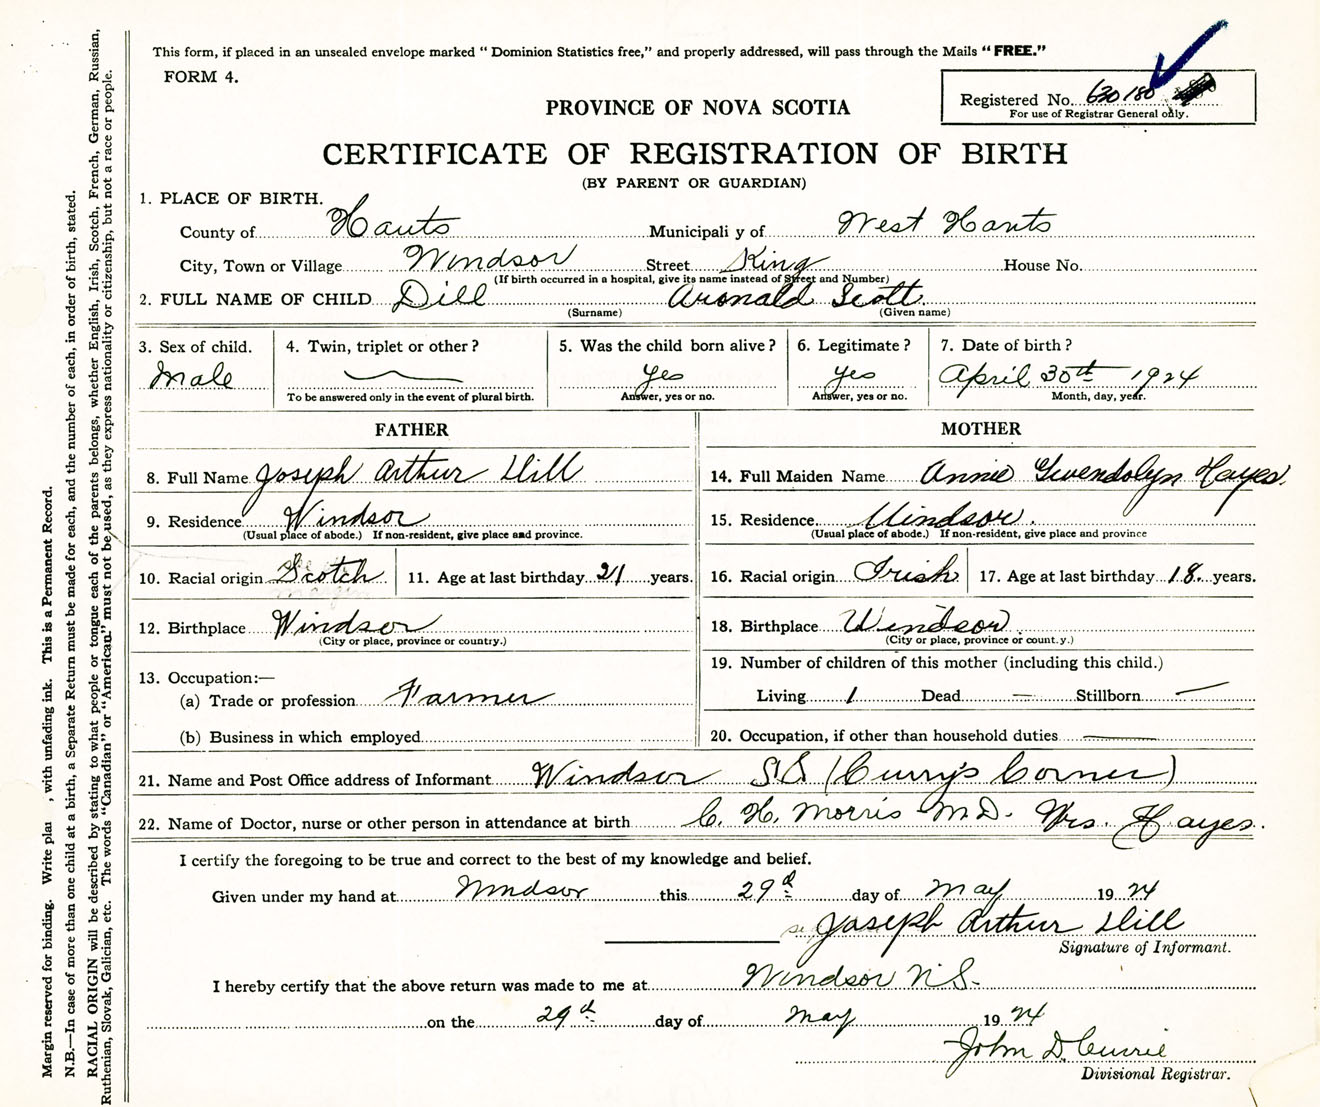 This form, if placed in an unsealed envelope marked “ Dominion Statistics free,” and properly addressed, will pass through the Mails “ FREE.”
FORM 4.
Registered No. 630180
For use of Registrar General only.
PROVINCE OF NOVA SCOTIA
CERTIFICATE OF REGISTRATION OF BIRTH
(BY PARENT OR GUARDIAN)
1. PLACE OF BIRTH.
County of Hants Municipali y of West Hants
City, Town or Village Windsor Street King House No.
(If birth occurred in a hospital, give its name instead of Street and Number)
2. FULL NAME OF CHILD Dill Aronald Scott
(Surname) (Given name)
3. Sex of child. 4. Twin, triplet or other ? 5. Was the child born alive ? 6. Legitimate ? 7. Date of birth ?
Male yes yes April 30th 1924
To be answered only in the event of plural birth. Answer, yes or no. Answer, yes or no. Month, day, year.
FATHER MOTHER
8. Full Name Joseph Arthur Dill 14. Full Maiden Name Annie Gwendolyn Hayes.
9. Residence Windsor 15. Residence. Windsor.
(Usual place of abode.) If non-resident, give place and province. (Usual place of abode.) If non-resident, give place and province
10. Racial origin Scotch 11. Age at last birthday 21 years. 16. Racial origin Irish 17. Age at last birthday 18. years.
margin
12. Birthplace Windsor 18. Birthplace Windsor
(City or place, province or country.) (City or place, province or count.y.)
19. Number of children of this mother (including this child.)
13. Occupation:—
(a) Trade or profession Farmer Living 1 Dead — Stillborn —
(b) Business in which employed 20. Occupation, if other than household duties —
21. Name and Post Office address of Informant Windsor (Curry's Corner)
22. Name of Doctor, nurse or other person in attendance at birth C. H. Morris M.D. Mrs. Hayes.
I certify the foregoing to be true and correct to the best of my knowledge and belief.
Given under my hand at Windsor this 29th day of May 1924
Joseph Arthur Dill
Signature of Informant.
I hereby certify that the above return was made to me at Windsor N.S.
on the 29th day of May 1924
John D. Currie
Divisional Registrar.
Margin reserved for binding. Write plai , with unfading ink. This is a Permanent Record.
N.B.—In case of more than one child at a birth, a Separate Return must be made for each, and the number of each, in order of birth, stated.
RACIAL ORIGIN will be described by stating to what people or tongue each of the parents belongs, whether English, Irish, Scotch, French, German, Russian,
Ruthenian, Slovak, Galician, etc. The words “Canadian” or “American” must not be used, as they express nationality or citizenship, but not a race or people.